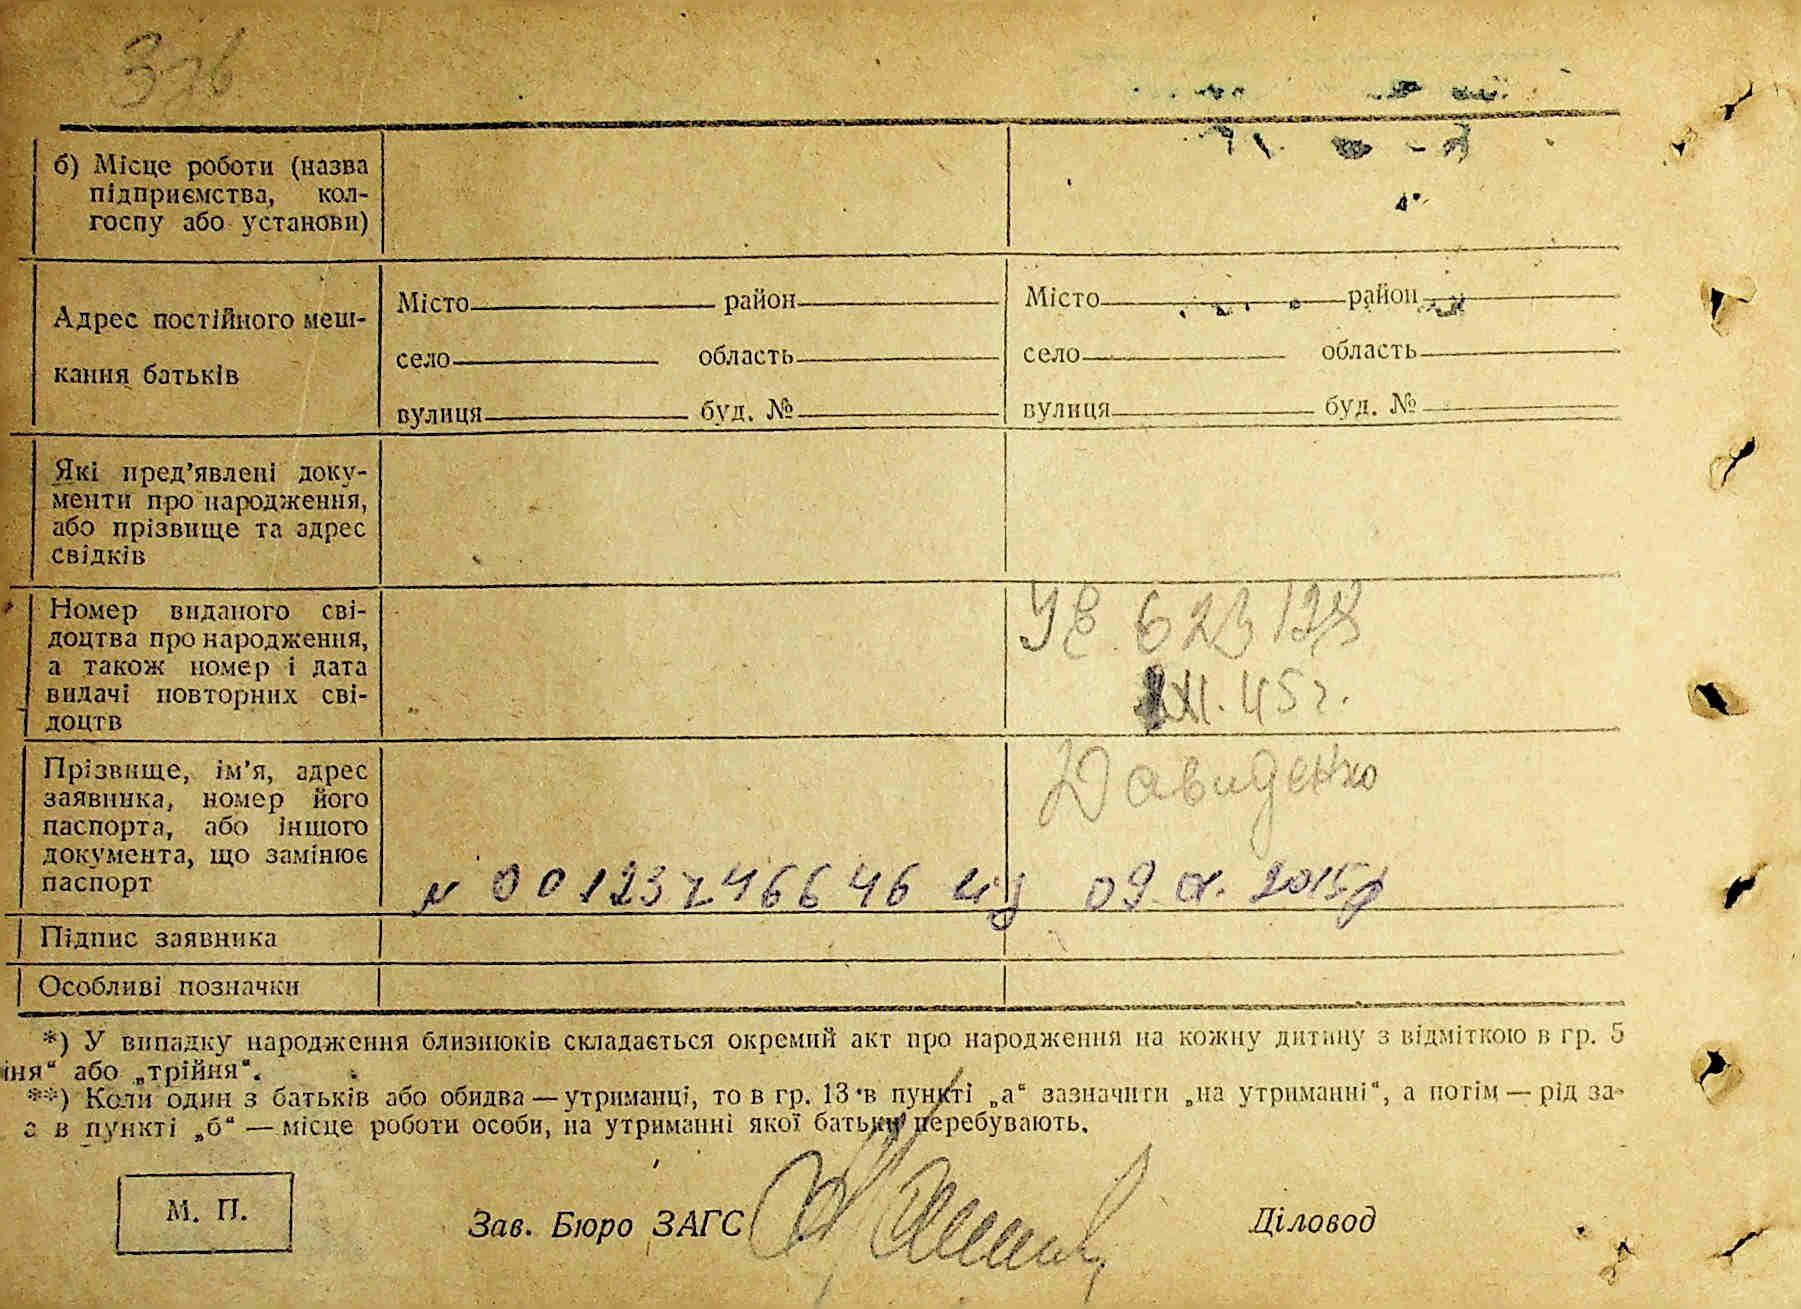 б) Місце роботи (назва
підприємства, кол-
госпу або установи)
Адрес постійного меш-
кання батьків
Місто район
село область
вулиця буд. №
Місто район
село область
вулиця буд. №
Які пред'явлені доку-
менти про народження,
або прізвище та адрес
свідків
Номер виданого сві-
доцтва про народження,
а також номер і дата
видачі повторних сві-
доцтв
УЕ 623138
XII. 45 г.
Прізвище, ім'я, адрес
заявника, номер його
паспорта, або іншого
документа, що замінює
паспорт
Давиденко
09. 2015р
Підпис заявника
Особливі позначки
*) У випадку народження близнюків складається окремий акт про народження на кожну дитину з відміткою в гр. 5
іня“ або „трійня“.
**) Коли один з батьків або обидва — утриманці, то в гр. 13 в пункті „а“ зазначити „на утриманні“, а потім — рід за-
а в пункті „б“ — місце роботи особи, на утриманні якої батьки перебувають.
М. П.
Зав. Бюро ЗАГС
Діловод